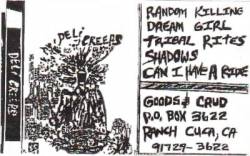 DELI CREEPS
DELi CREEPS
RANDOM KILLING
DREAM GIRL
TRIBAL RITES
SHADOWS
CAN I HAVE A RIDE
GOODS & CRUD
P.O. BOX 3622
RANCH CUCA, CA
91729-3622